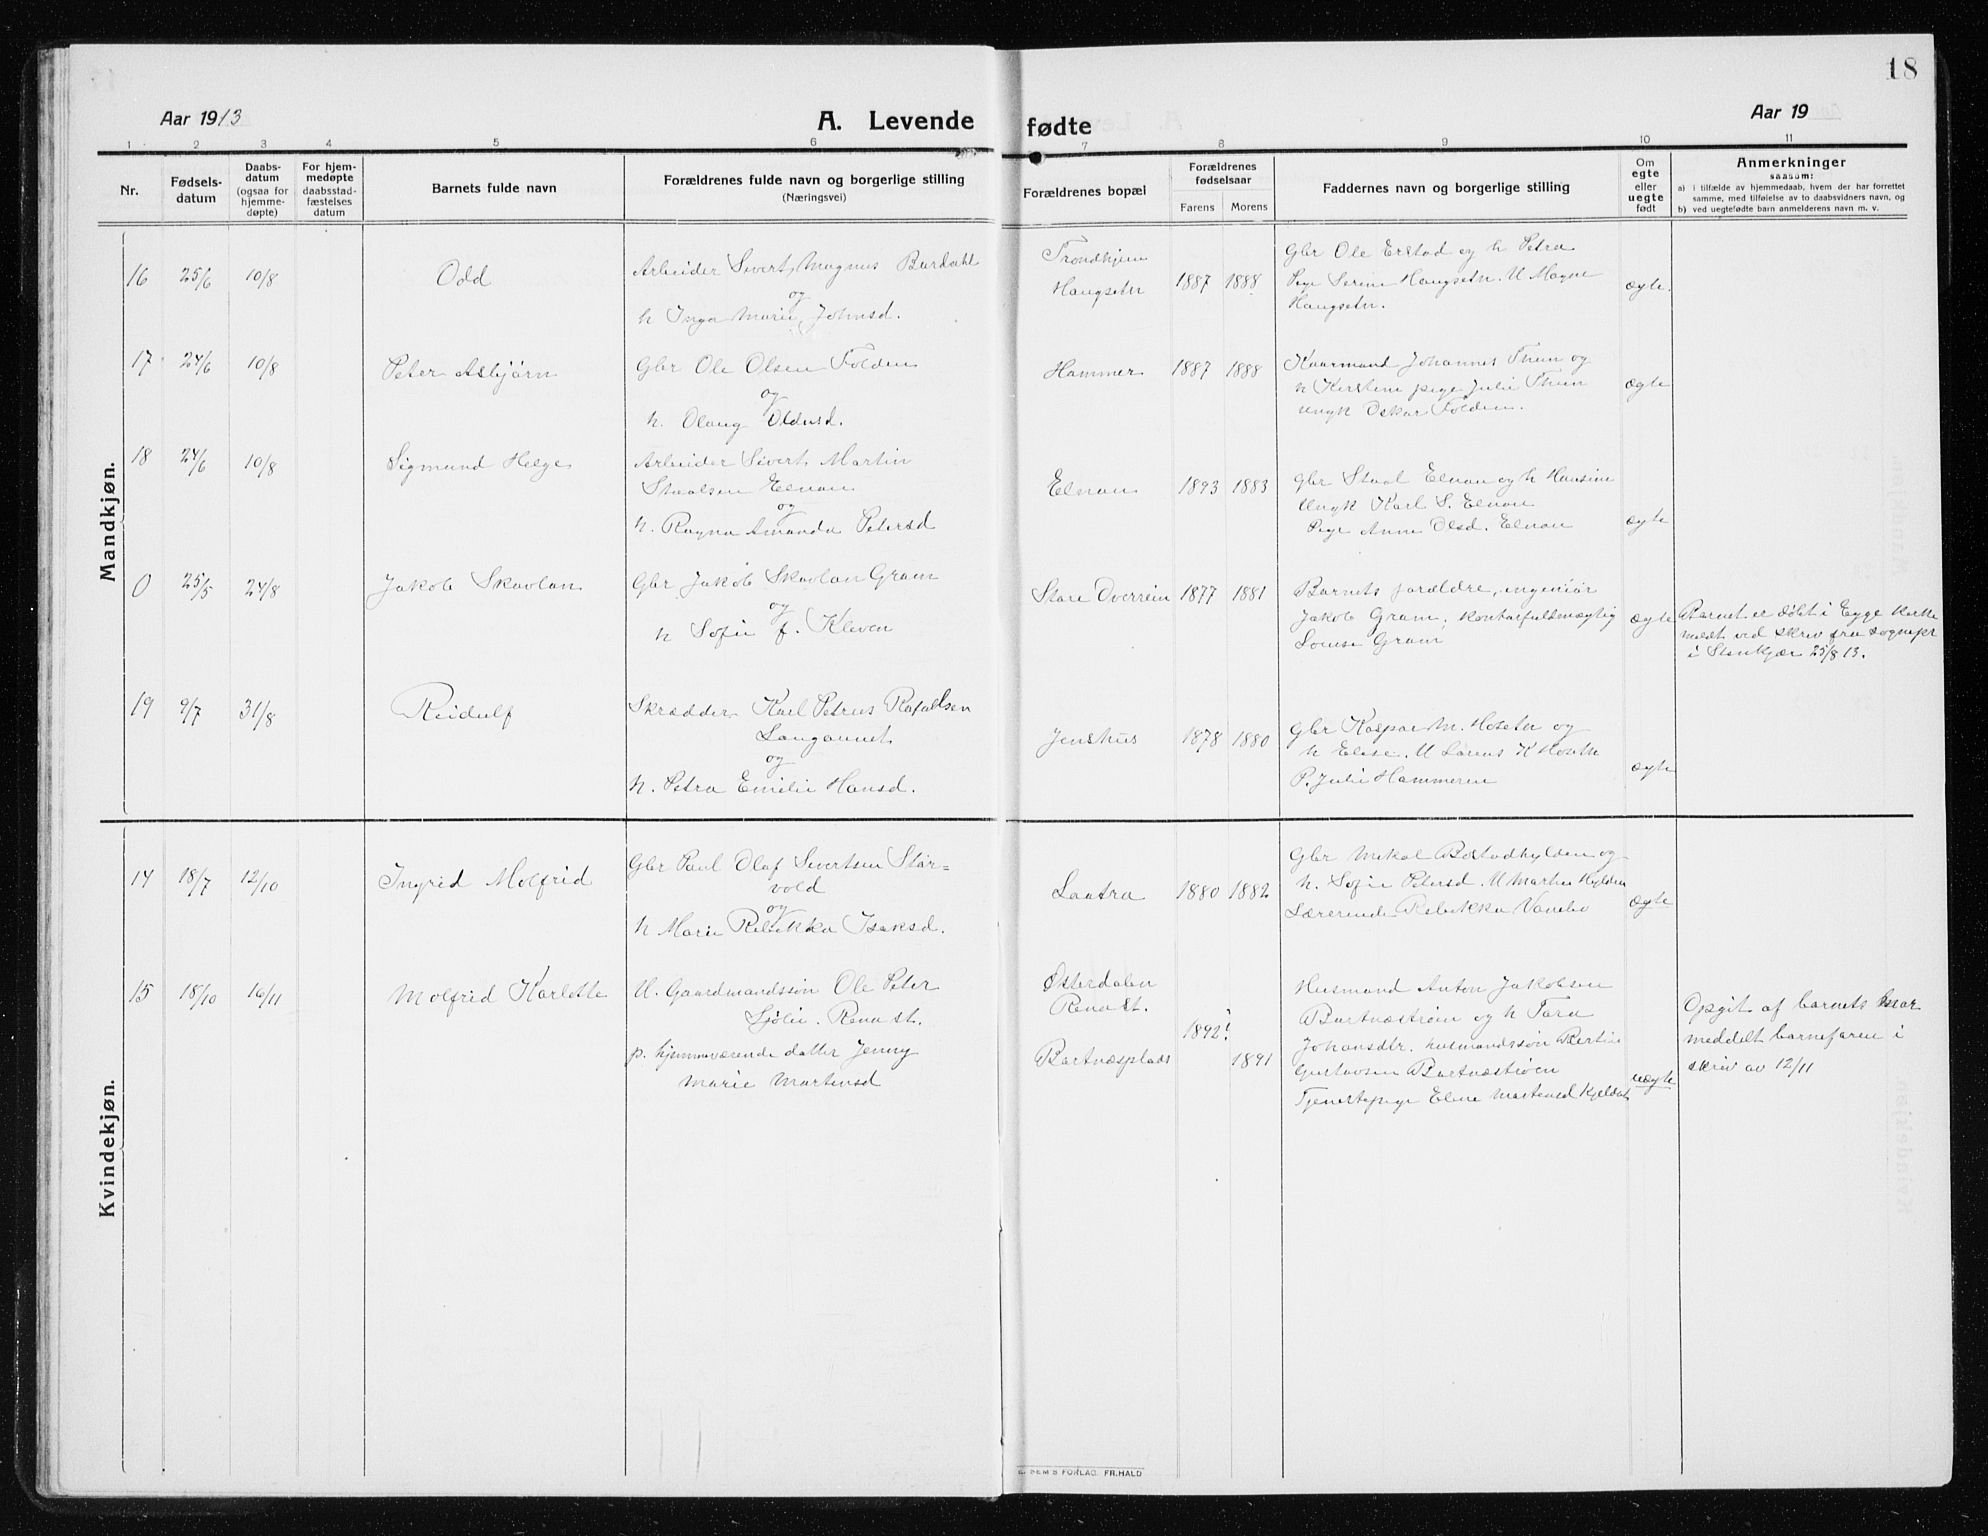 18
Aar 1913
A. Levende fødte
Aar 19
1 2 3 4 5 6 7 8 9 10 11
Nr.
Fødsels-
datum
Daabs-
datum
(ogsaa for
hjemme-
døpte)
For hjem-
medøpte
daabsstad-
fæstelses
datum
Barnets fulde navn
Forældrenes fulde navn og borgerlige stilling
(Næringsvei)
Forældrenes bopæl
Forældrenes
fødselsaar
Farens Morens
Faddernes navn og borgerlige stilling
Om
egte
eller
uegte
født
Anmerkninger
saasom:
a) i tilfælde av hjemmedaab, hvem der har forrettet
samme, med tilføielse av to daabsvidners navn, og
b) ved uegtefødte barn anmelderens navn m. v.
Mandkjøn.
16 25/6 10/8 Odd
Arbeider Sivert Magnus Bardahl
og
h Inga Marie Johnsd.
Trondhjem
Haugsetn
1887 1888
Gbr Ole Erstad og h Petra
Pige Serine Haugsetn. U Magne
Haugsetn.
ægte.
17 24/6 10/8 Peter Asbjørn
Gbr Ole Olsen Folden
og
h. Olaug
Hammer
1887 1888
Kaarmand Johannes Thun og
h Kirstine pige Julie Thun
Ungk Oskar Folden.
ægte
18 24/6 10/8 Sigmund Helge
Arbeider Sivert Martin
Staalsen Elnan
og
h. Ragna Amanda Petersd
Elnan
1893 1883
Gbr Staal Elnan og h Hansine
Ungk Karl S. Elnan
Pige Anne Olsd. Elnan
ægte
0 25/5 24/8 Jakob Skavlan
Gbr Jakob Skavlan Gram
og
h Sofie f. Kleven
Store Overrein
1877 1881
Barnets forældre, ingeniør
Jakob Gram, kontorfuldmægtig
Louise Gram
ægte
Barnet er døbt i Egge kirke
meldt ved skriv fra sognepr
i Stenkjær 25/8 13.
19 9/7 31/8 Reidulf
Skrædder Karl Petrus Rafaelsen
Langaunet
og
h. Petra Emilie Hansd.
Jenshus
1878 1880
Gbr Kaspar M. Hosetn og
h Elise. U Lorens K
P. Julie Hammeren
ægte
Kvindekjøn.
14 18/7 12/10 Ingrid Molfrid
Gbr Paul Olaf Sivertsen Stør-
vold
og
h Marie Rebekka Isaksd.
Laatra
1880 1882
Gbr Mikal Bostadhylden og
h. Sofie Petersd. U Marten Hylden
Lærerinde Rebekka Vandbo
ægte
15 18/10 16/11 Molfrid Karlotte
U. Gaardmandssøn Ole Peter
Sjølie. Rena st.
p. hjemmeværende datter Jenny
Marie Martinsd
Østerdalen
Rena st.
Bartnæsplads
1892? 1891
Husmand Anton Jakobsen
Bartnæstrøen og h Tora
Johansdtr. husmandssøn Bertin
Gustavsen Bartnæstrøen
Tjenestepige Eline Martinsd
uægte
Opgit af barnets mor
meddelt barnefaren i
skriv av 12/11
SEM'S FORLAG. FR.HALD